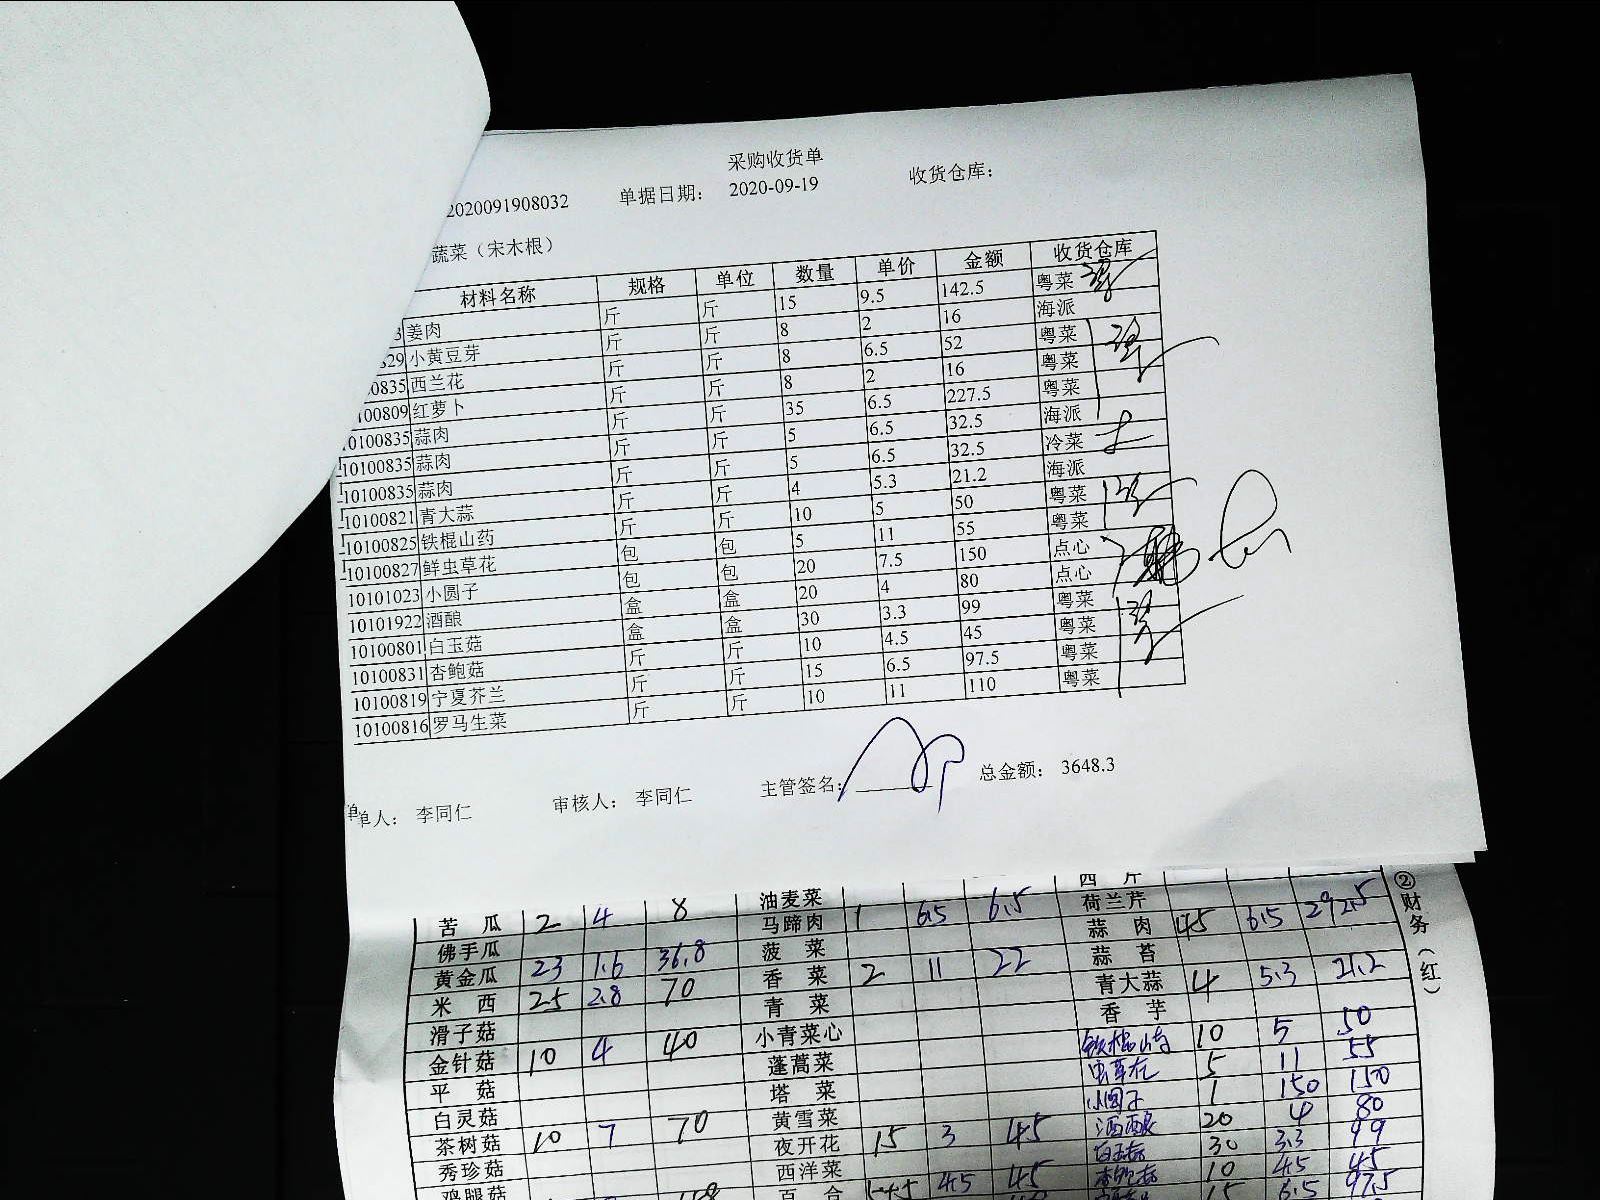 采购收货单
2020091908032 单据日期： 2020-09-19 收货仓库：
蔬菜（宋木根）
材料名称 规格 单位 数量 单价 金额 收货仓库
3 姜肉 斤 斤 15 9.5 142.5 粤菜
829 小黄豆芽 斤 斤 8 2 16 海派
00835 西兰花 斤 斤 8 6.5 52 粤菜
100809 红萝卜 斤 斤 8 2 16 粤菜
10100835 蒜肉 斤 斤 35 6.5 227.5 粤菜
10100835 蒜肉 斤 斤 5 6.5 32.5 海派
10100835 蒜肉 斤 斤 5 6.5 32.5 冷菜
10100821 青大蒜 斤 斤 4 5.3 21.2 海派
10100825 铁棍山药 斤 斤 10 5 50 粤菜
10100827 鲜虫草花 斤 斤 5 11 55 粤菜
10101023 小圆子 包 包 20 7.5 150 点心
10101922 酒酿 包 包 20 4 80 点心
10100801 白玉菇 盒 盒 30 3.3 99 粤菜
10100831 杏鲍菇 盒 盒 10 4.5 45 粤菜
10100819 宁夏芥兰 斤 斤 15 6.5 97.5 粤菜
10100816 罗马生菜 斤 斤 10 11 110 粤菜
单人： 李同仁 审核人： 李同仁 主管签名： 总金额： 3648.3
西芹
油麦菜 荷兰芹
苦瓜 2 4 8 马蹄肉 1 6.5 6.5 蒜肉 45 6.5 292.5
佛手瓜 菠菜 蒜苔
黄金瓜 23 1.6 36.8 香菜 2 11 22 青大蒜 4 5.3 21.2
米西 25 2.8 70 青菜 香芋
滑子菇 小青菜心 铁棍山药 10 5 50
金针菇 10 4 40 蓬蒿菜 虫草花 5 11 55
平菇 塔菜 小圆子 1 150 150
白灵菇 黄雪菜 酒酿 20 4 80
茶树菇 10 7 70 夜开花 15 3 45 白玉菇 30 3.3 99
秀珍菇 西洋菜 杏鲍菇 10 4.5 45
鸡腿菇 百合 4.5 45 15 6.5 97.5
②财务（红）